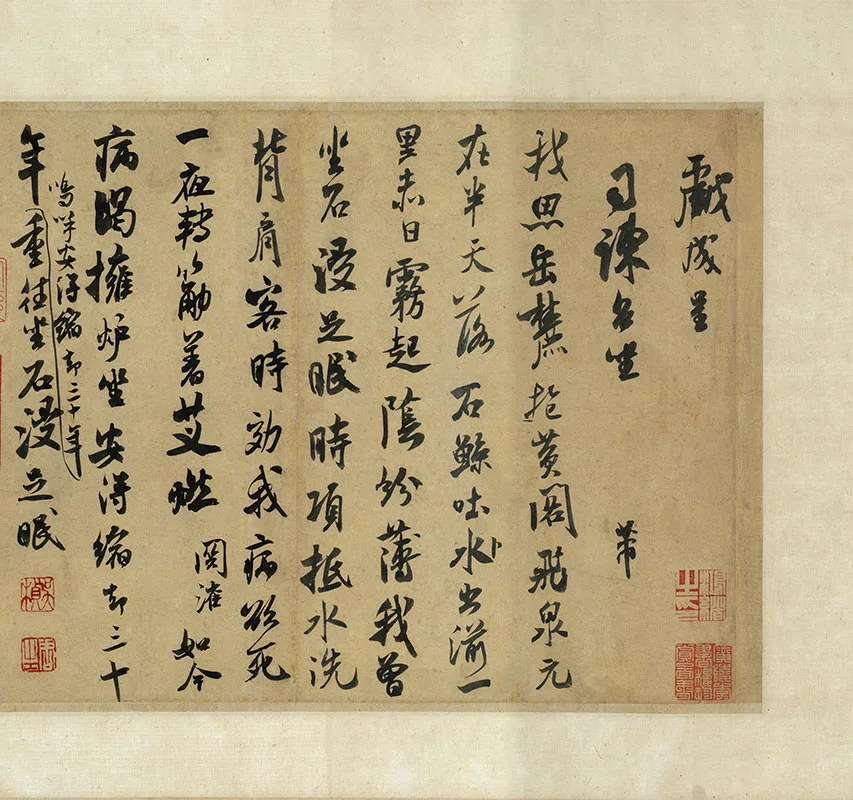 戲成呈
司諫台坐 芾
我思岳麓抱黄閣飛泉元
在半天落石鯨吐水出湔一
里赤日霧起陰紛薄我曾
坐石浸足眠時項抵水洗
背肩客時効我病欲死
一夜轉筋著艾燃 如今
病暍擁爐坐安得縮却三十
嗚呼安得縮却三十年
年重往坐石浸足眠